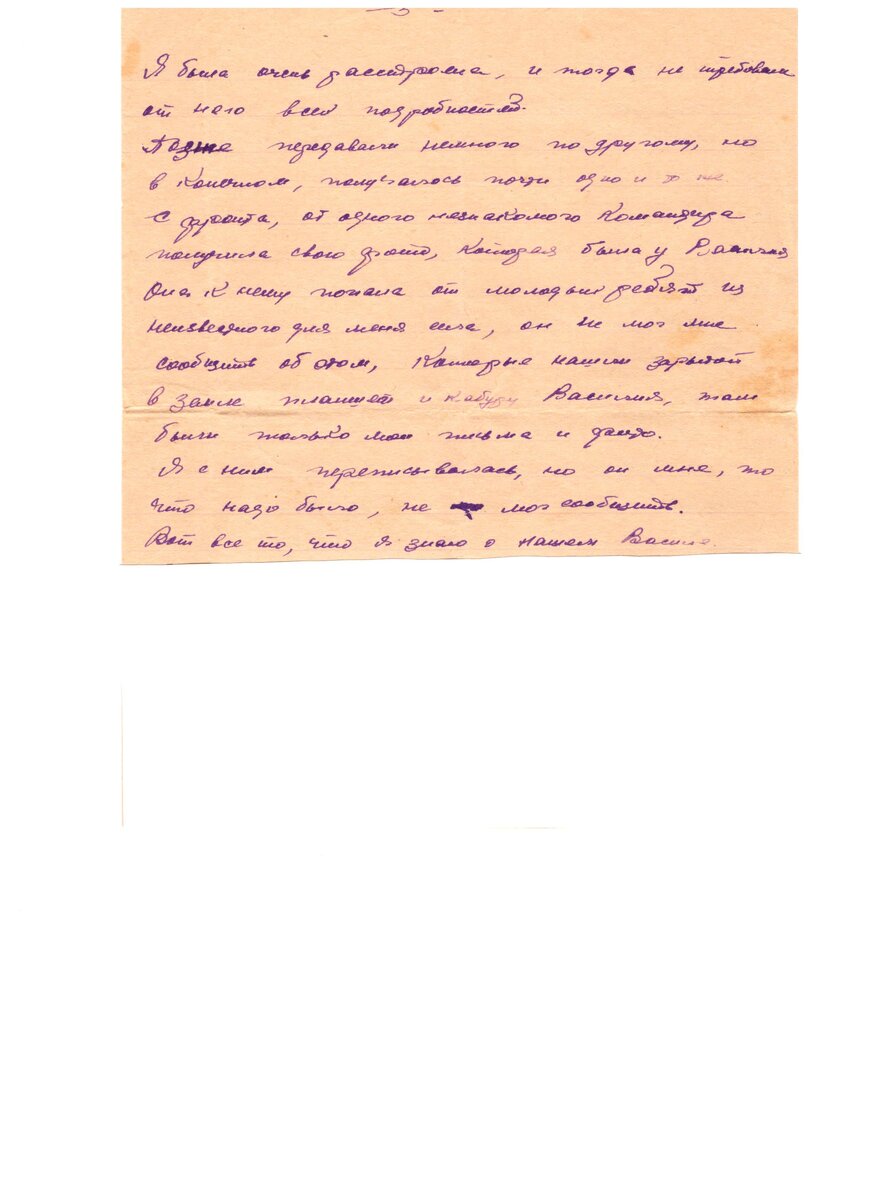 – 3 –
Я была очень расстроена, и тогда не требовала
от него всей подробностей.
Позже передавали немного по другому, но
в конечном, получалось почти одно и то же
С фронта, от одного незнакомого командира
получила свою фото, которая была у Василия
Она к нему попала от молодых ребят из
неизвестного для меня села, он не мог мне
сообщить об этом, которые нашли зарытой
в земле планшет и кабуру Василия, там
были только мои письма и фото.
Я с ним переписывалась, но он мне, то
что надо было, не мог сообщить.
Вот все то, что я знаю о нашем Васе.